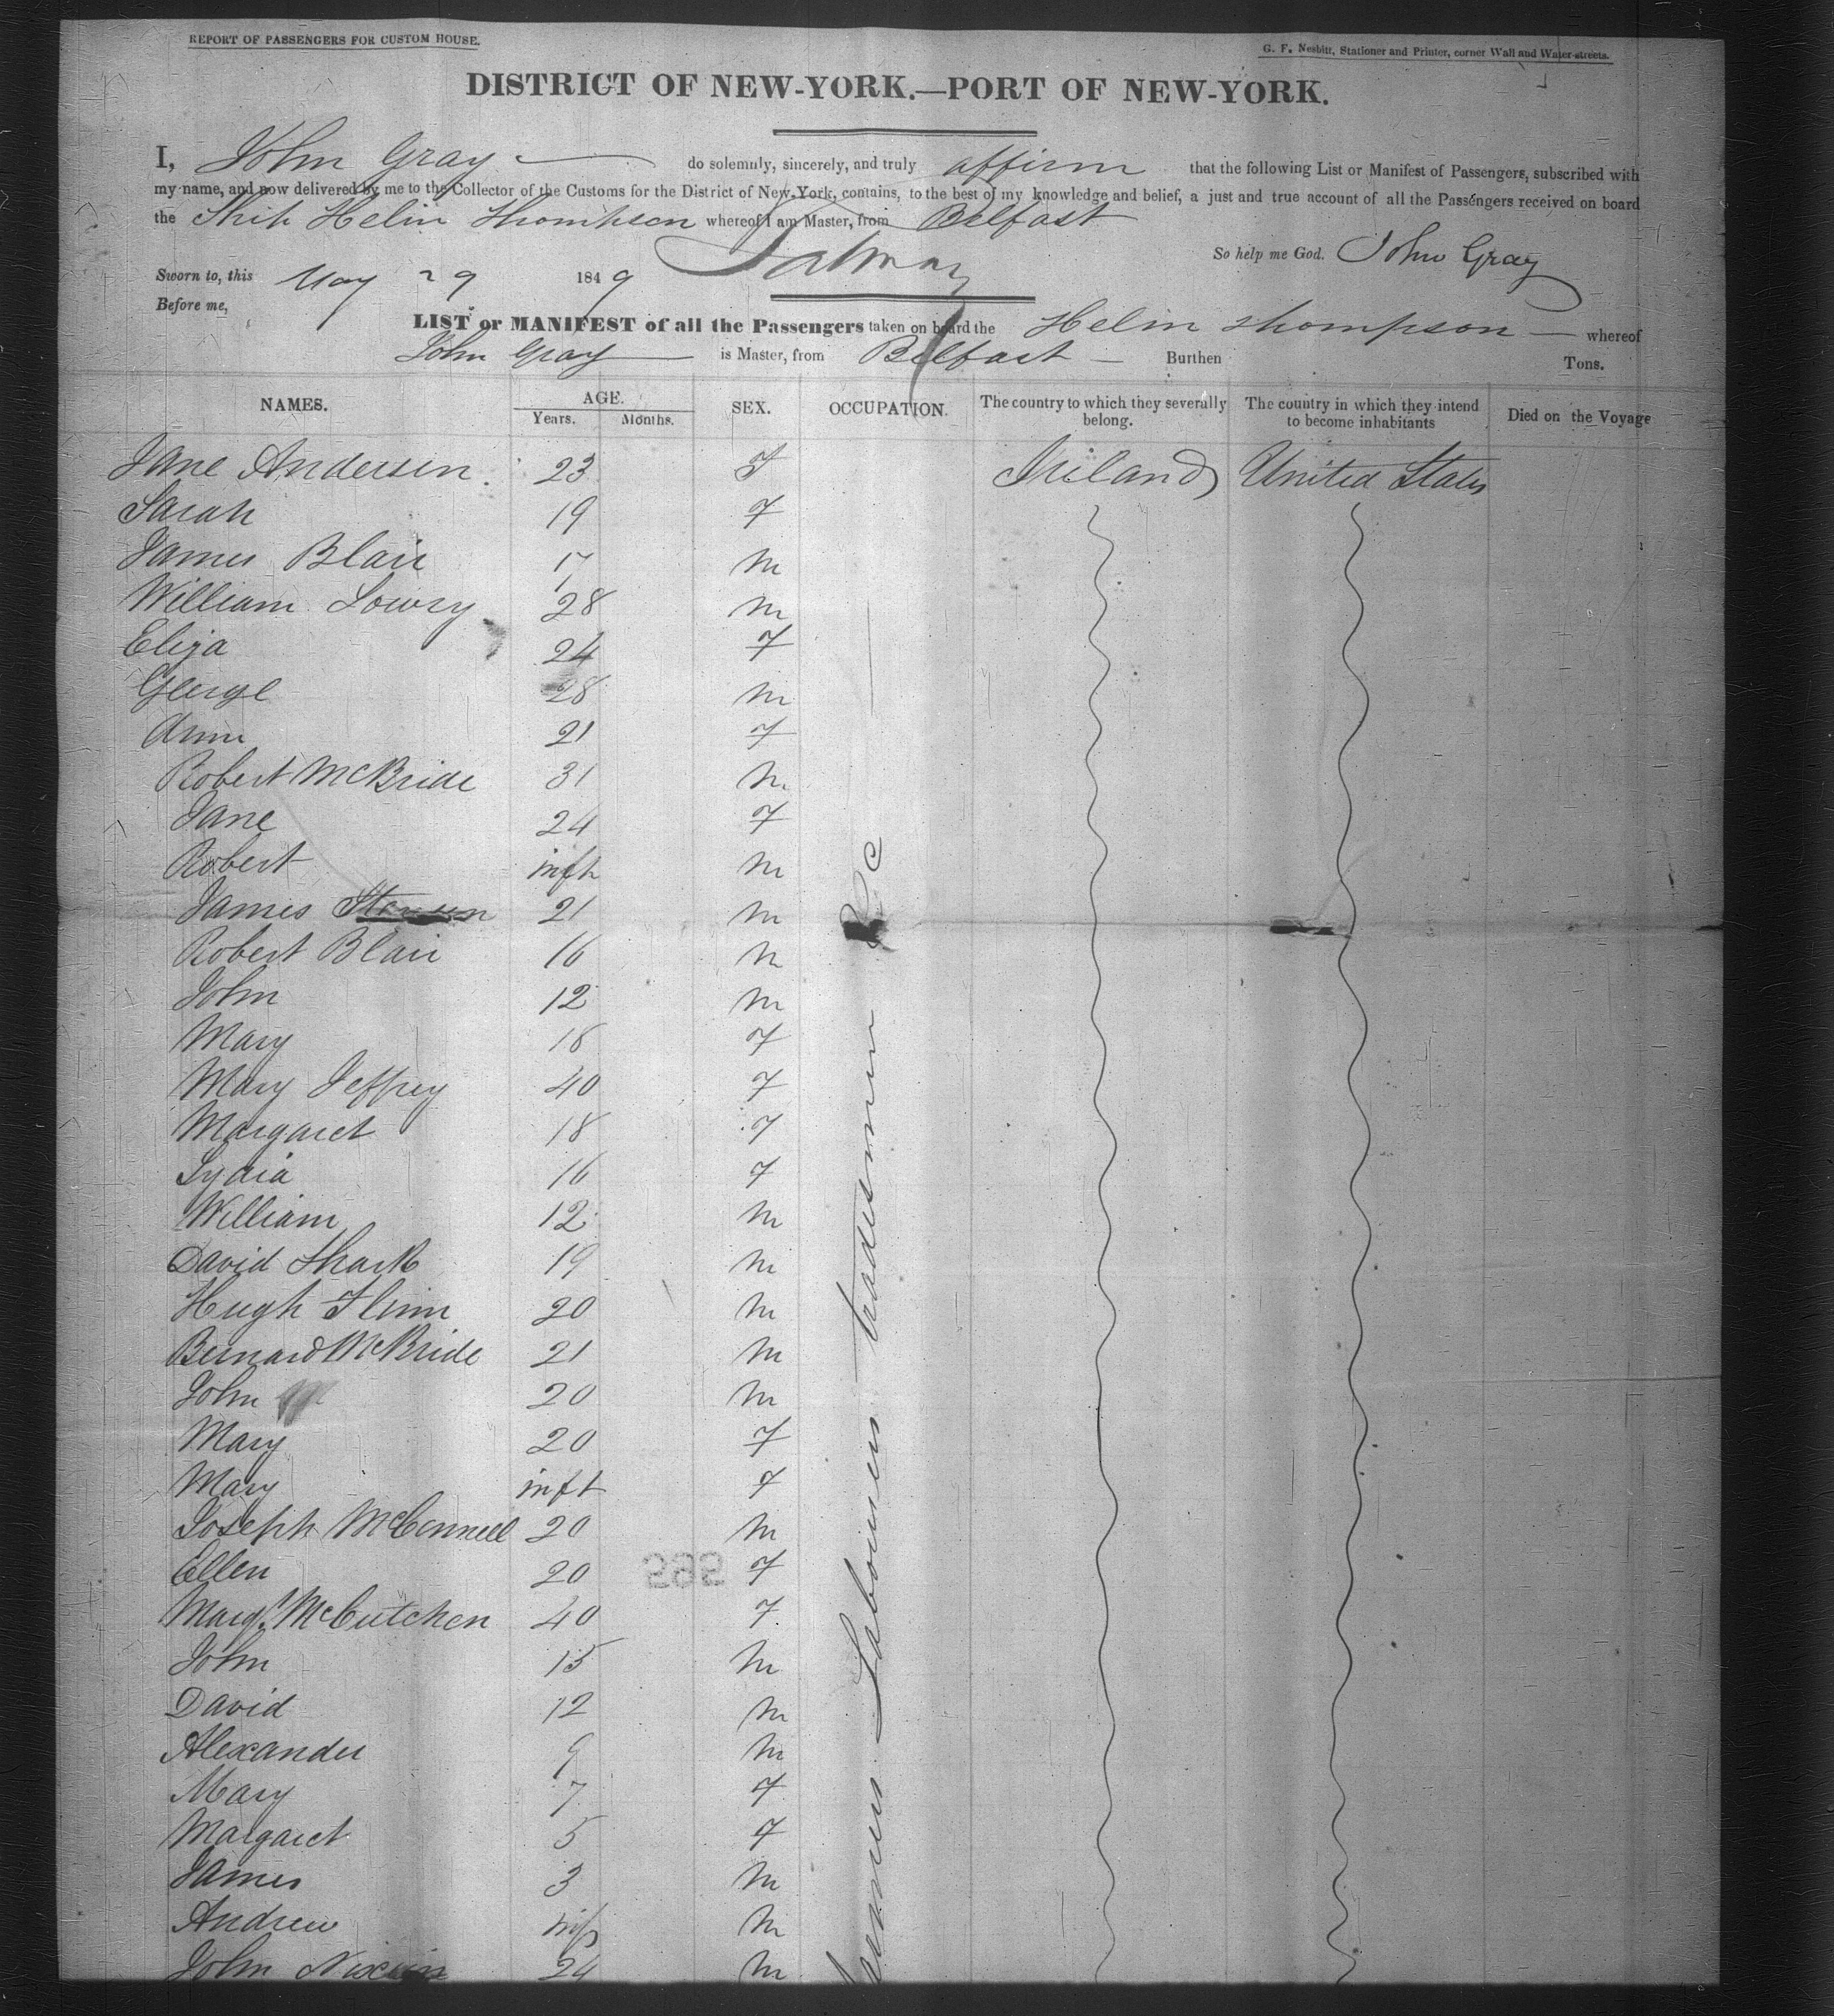 REPORT OF PASSENGERS FOR CUSTOM HOUSE.
G. F. Nesbitt, Stationer and Printer, corner Wall and Water-streets.
DISTRICT OF NEW-YORK.—PORT OF NEW-YORK.
I, John Gray do solemnly, sincerely, and truly affirm that the following List or Manifest of Passengers, subscribed with
my name, and now delivered by me to the Collector of the Customs for the District of New-York, contains, to the best of my knowledge and belief, a just and true account of all the Passengers received on board
the Ship Helin Thompson whereof I am Master, from Belfast
So help me God. John Gray
Sworn to, this May 29 1849
Before me,
LIST or MANIFEST of all the Passengers taken on board the Helin Thompson whereof
John Gray is Master, from Belfast Burthen Tons.
NAMES. AGE. SEX. OCCUPATION. The country to which they severally belong. The country in which they intend to become inhabitants Died on the Voyage
Years. Months.
Jane Andersen 23 F Ireland United States
Sarah 19 F
James Blair 17 m
William Lowry 28 m
Eliza 24 F
George 28 m
Ann 21 F
Robert McBride 31 m
Jane 24 F
Robert inft m
James 21 m
Robert Blair 16 m
John 12 m
Mary 18 F
Mary Jeffrey 40 F
Margaret 18 F
Lydia 16 F
William 12 m
David 19 m
Hugh Flinn 20 m
Bernard McBride 21 m
John 20 m
Mary 20 F
Mary inft F
Joseph McConnell 20 m
Ellen 20 F
Margt McCutchen 40 F
John 15 m
David 12 m
Alexander 9 m
Mary 7 F
Margaret 5 F
James 3 m
Andrew inft m
John 24 m
Labourers tradesmen &c